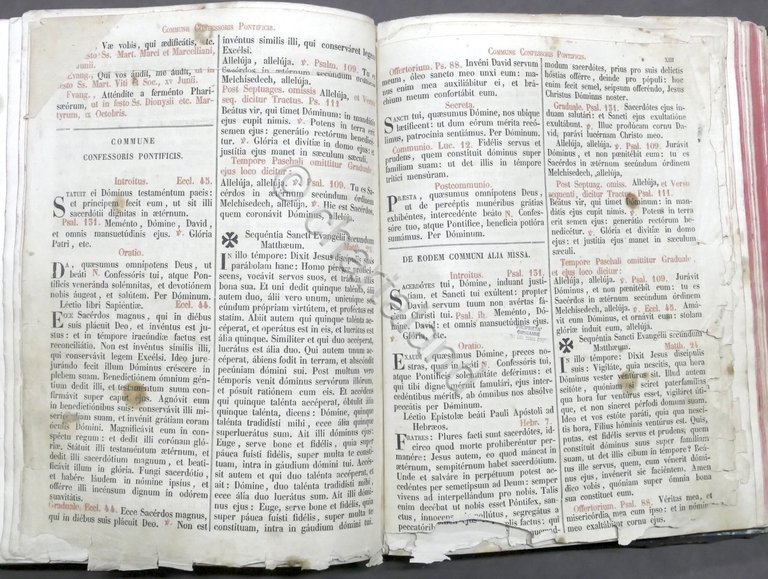 COMMUNE CONFESSORIS PONTIFICIS.
Væ vobis, qui ædificátis, etc.
festo Ss. Mart. Marci et Marcelliani,
Junii.
Evang. Qui vos audit, me audit, ut in
festo Ss. Mart. Viti et Soc., xv Junii.
Evang. Atténdite a ferménto Phari-
sæórum, ut in festo Ss. Dionysii etc. Mar-
tyrum, ix Octobris.
COMMUNE
CONFESSORIS PONTIFICIS.
Introitus. Eccl. 45.
STATUIT ei Dóminus testaméntum pacis:
et príncipem fecit eum, ut sit illi
sacerdótii dígnitas in ætérnum.
Psal. 131. Meménto, Dómine, David,
et omnis mansuetúdinis ejus. ℣. Glória
Patri, etc.
Oratio.
DA, quæsumus, omnípotens Deus, ut
beáti N. Confessóris tui, atque Pon-
tíficis veneránda solémnitas, et devotiónem
nobis áugeat, et salútem. Per Dóminum.
Léctio libri Sapiéntiæ. Eccli. 44.
ECCE Sacérdos magnus, qui in diébus
suis plácuit Deo, et invéntus est jus-
tus: et in témpore iracúndiæ factus est
reconciliátio. Non est invéntus símilis illi,
qui conservávit legem Excélsi. Ideo jure-
jurándo fecit illum Dóminus créscere in
plebem suam. Benedictiónem ómnium gén-
tium dedit illi, et testaméntum suum con-
firmávit super caput ejus. Agnóvit eum
in benedictiónibus suis: conservávit illi mi-
sericórdiam suam, et invénit grátiam coram
óculis Dómini. Magnificávit eum in con-
spéctu regum: et dedit illi corónam gló-
riæ. Státuit illi testaméntum ætérnum, et
dedit illi sacerdótium magnum, et beati-
ficávit illum in glória. Fungi sacerdótio,
et habére laudem in nómine ipsíus, et
offérre illi incénsum dignum in odórem
suavitátis.
Graduale. Eccl. 44. Ecce Sacérdos magnus,
qui in diébus suis plácuit Deo. ℣. Non est
invéntus símilis illi, qui conserváret legem
Excélsi.
Allelúja, allelúja. ℣. Psalm. 109. Tu es
Sacérdos in ætérnum secúndum órdinem
Melchísedech, allelúja.
Post Septuages. omissis Allelúja, et Ver-
seq. dicitur Tractus. Ps. 111
Beátus vir, qui timet Dóminum: in mandátis
ejus cupit nimis. ℣. Potens in terra
erit semen ejus: generátio rectórum benedi-
cétur. ℣. Glória et divítiæ in domo ejus: et
justítia ejus manet in sǽculum sǽculi.
Tempore Paschali omittitur Graduale,
ejus loco dicitur:
Allelúja, allelúja. ℣. Psal. 109. Tu es Sa-
cérdos in ætérnum, secúndum órdinem
Melchísedech, allelúja. ℣. Hic est Sacérdos,
quem coronávit Dóminus, allelúja.
✠ Sequéntia Sancti Evangélii secúndum
Matthæum.
IN illo témpore: Dixit Jesus discípulis suis
parábolam hanc: Homo péregre
scens, vocávit servos suos, et trádidit illis
bona sua. Et uni dedit quinque talénta, álii
autem duo, álii vero unum, unicuíque se-
cúndum própriam virtútem, et proféctus est
statim. Abiit autem qui quinque talénta ac-
céperat, et operátus est in eis, et lucrátus est
ália quinque. Simíliter et qui duo accéperat,
lucrátus est ália duo. Qui autem unum ac-
céperat, ábiens fodit in terram, et abscóndit
pecúniam dómini sui. Post multum vero
témporis venit dóminus servórum illórum,
et pósuit ratiónem cum eis. Et accédens
qui quinque talénta accéperat, óbtulit ália
quinque talénta, dicens: Dómine, quinque
talénta tradidísti mihi, ecce ália quinque
superlucrátus sum. Ait illi dóminus ejus:
Euge, serve bone et fidélis, quia super
pauca fuísti fidélis, super multa te con-
stítuam, intra in gáudium dómini tui. Accés-
sit autem et qui duo talénta accéperat, et
ait: Dómine, duo talénta tradidísti mihi,
ecce ália duo lucrátus sum. Ait illi dómi-
nus ejus: Euge, serve bone et fidélis, quia
super pauca fuísti fidélis, super multa te
constítuam, intra in gáudium dómini tui.
COMMUNE CONFESSORIS PONTIFICIS. XIII
Offertorium. Ps. 88. Invéni David servum
meum, óleo sancto meo unxi eum: ma-
nus enim mea auxiliábitur ei, et brá-
chium meum confortábit eum.
Secreta.
SANCTI tui, quæsumus, Dómine, nos ubíque
lætíficent: ut dum eórum mérita recó-
limus, patrocínia sentiámus. Per Dóminum.
Communio. Luc. 12. Fidélis servus et
prudens, quem constítuit dóminus super
famíliam suam: ut det illis in témpore
trítici mensúram.
Postcommunio.
PRÆSTA, quæsumus, omnípotens Deus,
ut de percéptis munéribus grátias
exhibéntes, intercedénte beáto N. Confes-
sóre tuo, atque Pontífice, benefícia potióra
sumámus. Per Dóminum.
DE EODEM COMMUNI ALIA MISSA.
Introitus. Psal. 131.
SACERDÓTES tui, Dómine, índuant justí-
tiam, et Sancti tui exsúltent: propter
David servum tuum non avértas fá-
ciem Christi tui. Psal. ib. Meménto, Dó-
mine, David: et omnis mansuetúdinis ejus.
℣. Glória.
Oratio.
EXAUDI, quæsumus, Dómine, preces
nostras, quas in beáti N. Confessóris tui,
atque Pontíficis solemnitáte deférimus: et
qui tibi digne méruit famulári, ejus inter-
cedéntibus méritis, ab ómnibus nos absólve
peccátis per Dóminum.
Léctio Epístolæ beáti Pauli Apóstoli ad
Hebræos. Hebr.
FRATRES: Plures facti sunt sacerdótes, id-
círco quod morte prohiberéntur per-
manére: Jesus autem, eo quod máneat in
ætérnum, sempitérnum habet sacerdótium.
Unde et salváre in perpétuum potest ac-
cedéntes per semetípsum ad Deum: semper
vivens ad interpellándum pro nobis. Talis
enim decébat ut nobis esset Póntifex, san-
ctus, ínnocens, pollútus, segregátus a
peccatóri
modum sacerdótes, prius pro suis delíctis
hóstias offérre, deínde pro pópuli: hoc
enim fecit semel, seípsum offeréndo, Jesus
Christus Dóminus noster.
Graduale. Psal. 131. Sacerdótes ejus ín-
duam salutári: et Sancti ejus exsultatióne
exsultábunt. ℣. Illuc prodúcam cornu Da-
vid, parávi lucérnam Christo meo.
Allelúja, allelúja. ℣. Psal. 109. Jurávit
Dóminus, et non pœnitébit eum: tu es
Sacérdos in ætérnum secúndum órdinem
Melchísedech, allelúja.
Post Septuag. omiss. Allelúja, et Versu
sequenti, dicitur Tractus. Psal. 111.
Beátus vir, qui timet Dóminum: in man-
dátis ejus cupit nimis. ℣. Potens in terra
erit semen ejus: generátio rectórum bene-
dicétur. ℣. Glória et divítiæ in domo
ejus: et justítia ejus manet in sǽculum
sǽculi.
Tempore Paschali omittitur Graduale
et ejus loco dicitur:
Allelúja, allelúja. ℣. Psal. 109. Jurávit
Dóminus, et non pœnitébit eum: tu es
Sacérdos in ætérnum secúndum órdinem
Melchísedech, allelúja. ℣. Eccl. 45. Amá-
vit eum Dóminus, et ornávit eum: stolam
glóriæ índuit eum, allelúja.
✠ Sequéntia Sancti Evangélii secúndum
Matthæum. Matth. 24
IN illo témpore: Dixit Jesus discípulis
suis: Vigiláte, quia nescítis, qua hora
Dóminus vester ventúrus sit. Illud autem
scitóte, quóniam si sciret paterfamílias
qua hora fur ventúrus esset, vigiláret úti-
que, et non síneret pérfodi domum suam.
Ideo et vos estóte paráti, quia qua nescí-
tis hora, Fílius hóminis ventúrus est. Quis,
putas, est fidélis servus et prudens, quem
constítuit dóminus suus super famíliam
suam, ut det illis cibum in témpore? Beá-
tus ille servus, quem, cum vénerit dómi-
nus ejus, invénerit sic faciéntem. Amen
dico vobis, quóniam super ómnia bona
sua constítuet eum.
Offertorium. Psal. 88. Véritas mea, et
misericórdia mea cum ipso: et in nómine
meo exaltábitur cornu ejus.